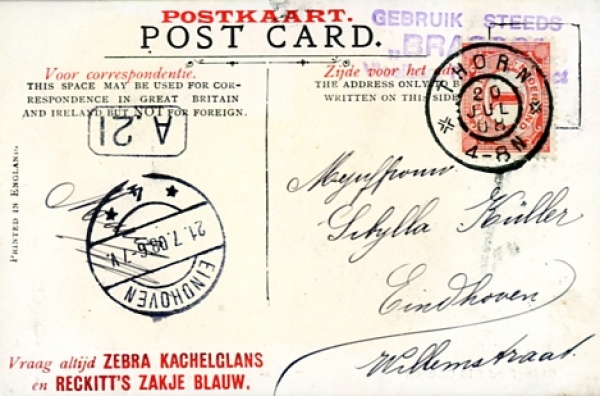 POSTKAART.
POST CARD.
GEBRUIK STEEDS
„BRASSO"
Voor correspondentie.
THIS SPACE MAY BE USED FOR COR-
RESPONDENCE IN GREAT BRITAIN
AND IRELAND BUT NOT FOR FOREIGN.
Zijde voor het
THE ADDRESS ONLY
WRITTEN ON THIS SIDE
THORN
20
JUL
08
4-8N
NEDERLAND
1
A 21
PRINTED IN ENGLAND.
21.7.08 6-7V.
EINDHOVEN
Mejuffrouw
Sibylla Küller
Eindhoven
Willemstraat.
Vraag altijd ZEBRA KACHELGLANS
en RECKITT'S ZAKJE BLAUW.